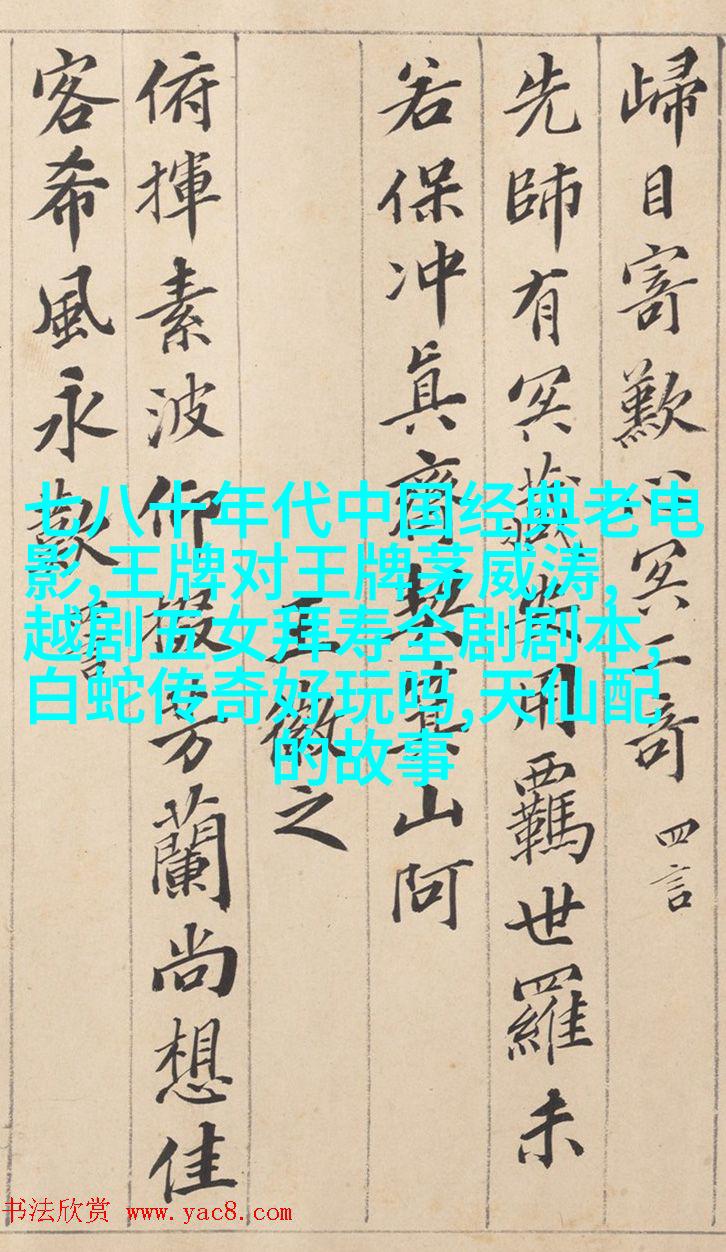 歸目寄歎心冥二奇 四言
先師有冥藏安用羈世羅未
若保冲真齊契箕山阿
王徽之
俯揮素波仰掇芳蘭尚想佳
客希風永歎
七八十年代中国经典老电
影,王牌对王牌茅威涛,
越剧五女拜寿全剧剧本,
白蛇传奇好玩吗,天仙配
的故事
书法欣赏 www.yac8.com